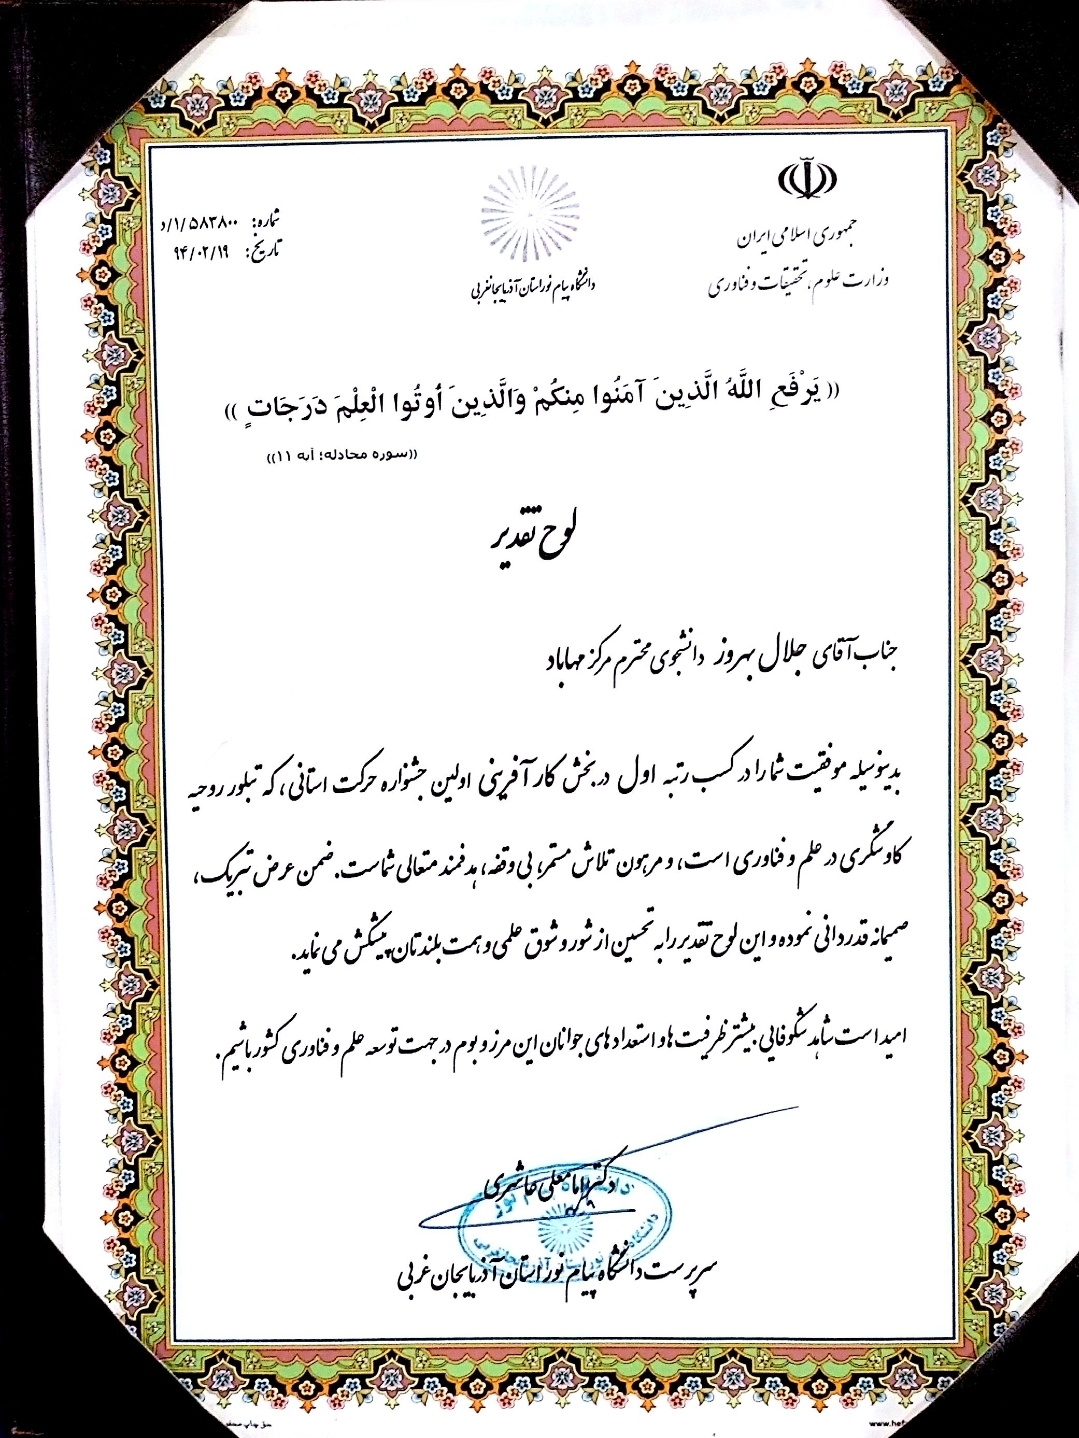 جمهوری اسلامی ایران
وزارت علوم، تحقیقات و فناوری
دانشگاه پیام نور استان آذربایجانغربی
شماره: ۵۸۳۸۰۰/۱/د
تاریخ: ۹۴/۰۲/۱۹
(( يَرْفَعِ اللَّهُ الَّذِينَ آمَنُوا مِنكُمْ وَالَّذِينَ أُوتُوا الْعِلْمَ دَرَجَاتٍ ))
((سوره مجادله؛ آیه ۱۱))
لوح تقدیر
جناب آقای جلال بهروز دانشجوی محترم مرکز مهاباد
بدینوسیله موفقیت شما را در کسب رتبه اول در بخش کار آفرینی اولین جشنواره حرکت استانی، که تبلور روحیه
کاوشگری در علم و فناوری است، و مرهون تلاش مستمر، بی وقفه، هدفمند متعالی شماست. ضمن عرض تبریک،
صمیمانه قدردانی نموده و این لوح تقدیر را به تحسین از شور و شوق علمی و همت بلندتان پیشکش می نماید.
امید است شاهد شکوفایی بیشتر ظرفیت ها و استعداد های جوانان این مرز و بوم در جهت توسعه علم و فناوری کشور باشیم.
دکتر امامعلی عاشری
سرپرست دانشگاه پیام نور استان آذربایجان غربی
حق چاپ
www.hef